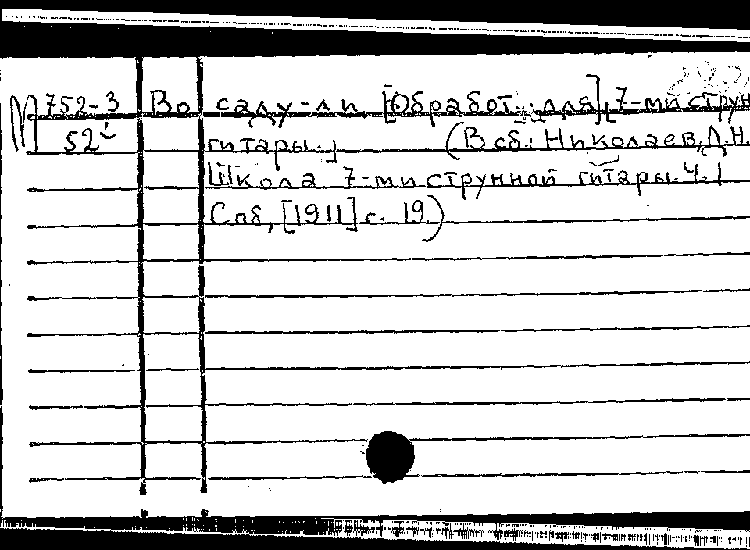 М 752-3 Во саду-ли. [Обработ. для] 7-ми струн
52 гитары.] (В сб.: Николаев, Д.Н.
Школа 7-ми струнной гитары. Ч. 1
Спб, [1911] с. 19.)